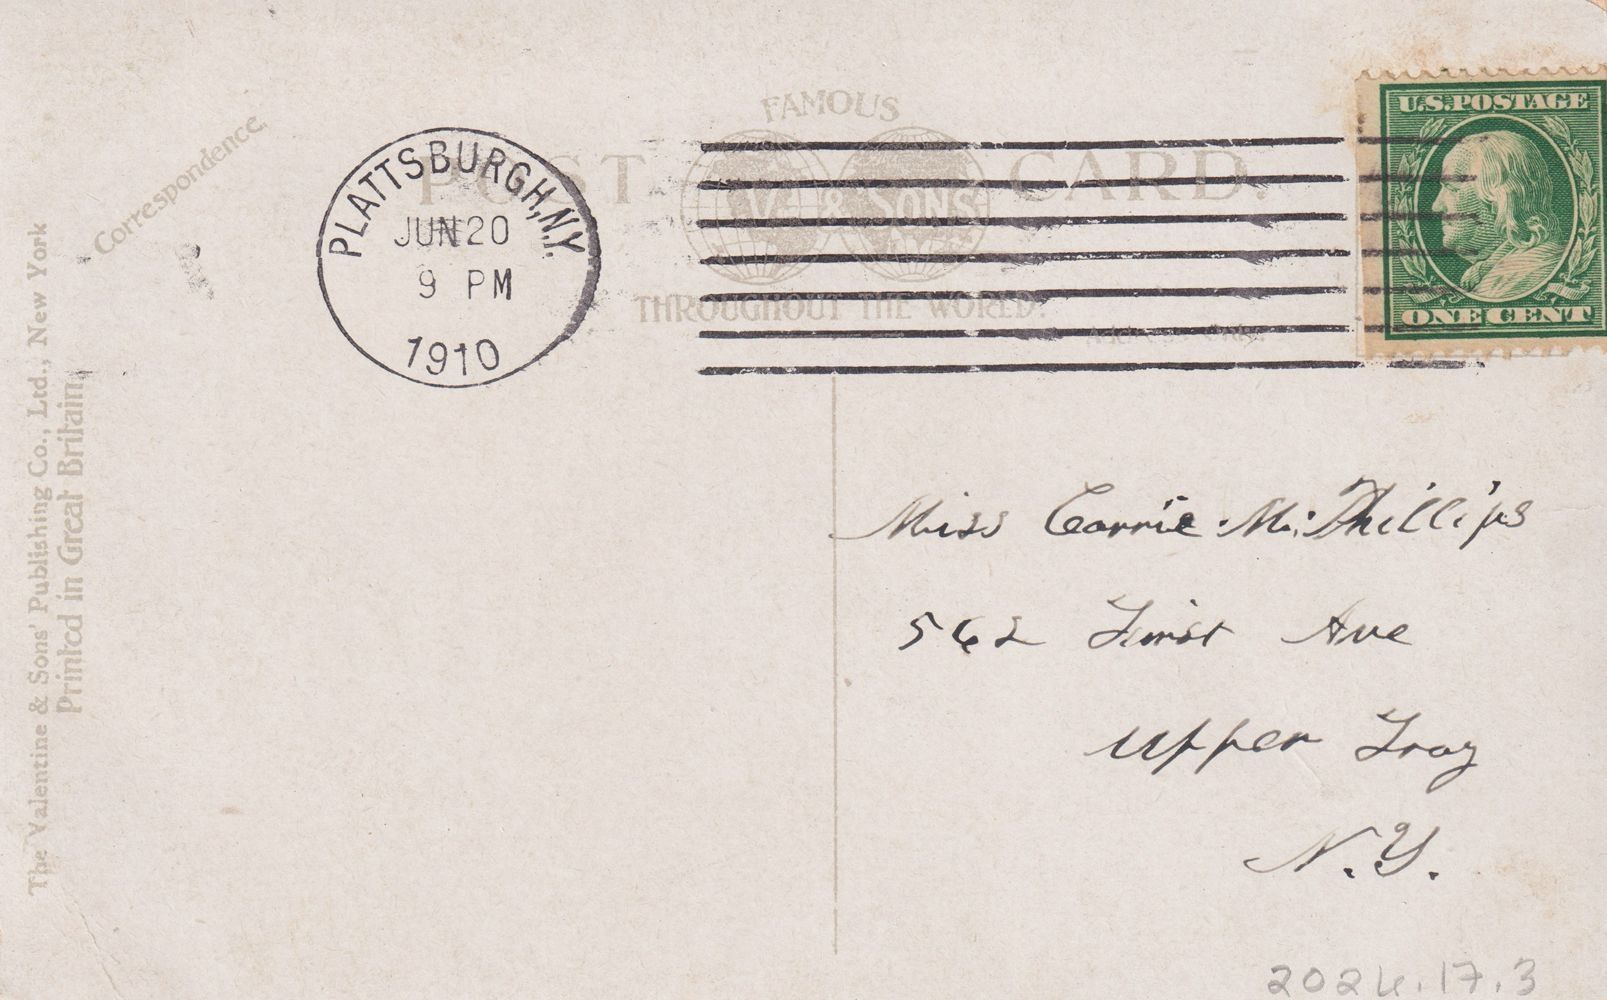 FAMOUS
POST CARD.
V. & SONS.
THROUGHOUT THE WORLD.
Address Only.
Correspondence.
PLATTSBURGH, N.Y.
JUN 20
9 PM
1910
U.S. POSTAGE
ONE CENT
The Valentine & Sons' Publishing Co., Ltd., New York
Printed in Great Britain.
Miss Carrie M. Phillips
562 First Ave
Upper Troy
N.Y.
2024.17.3